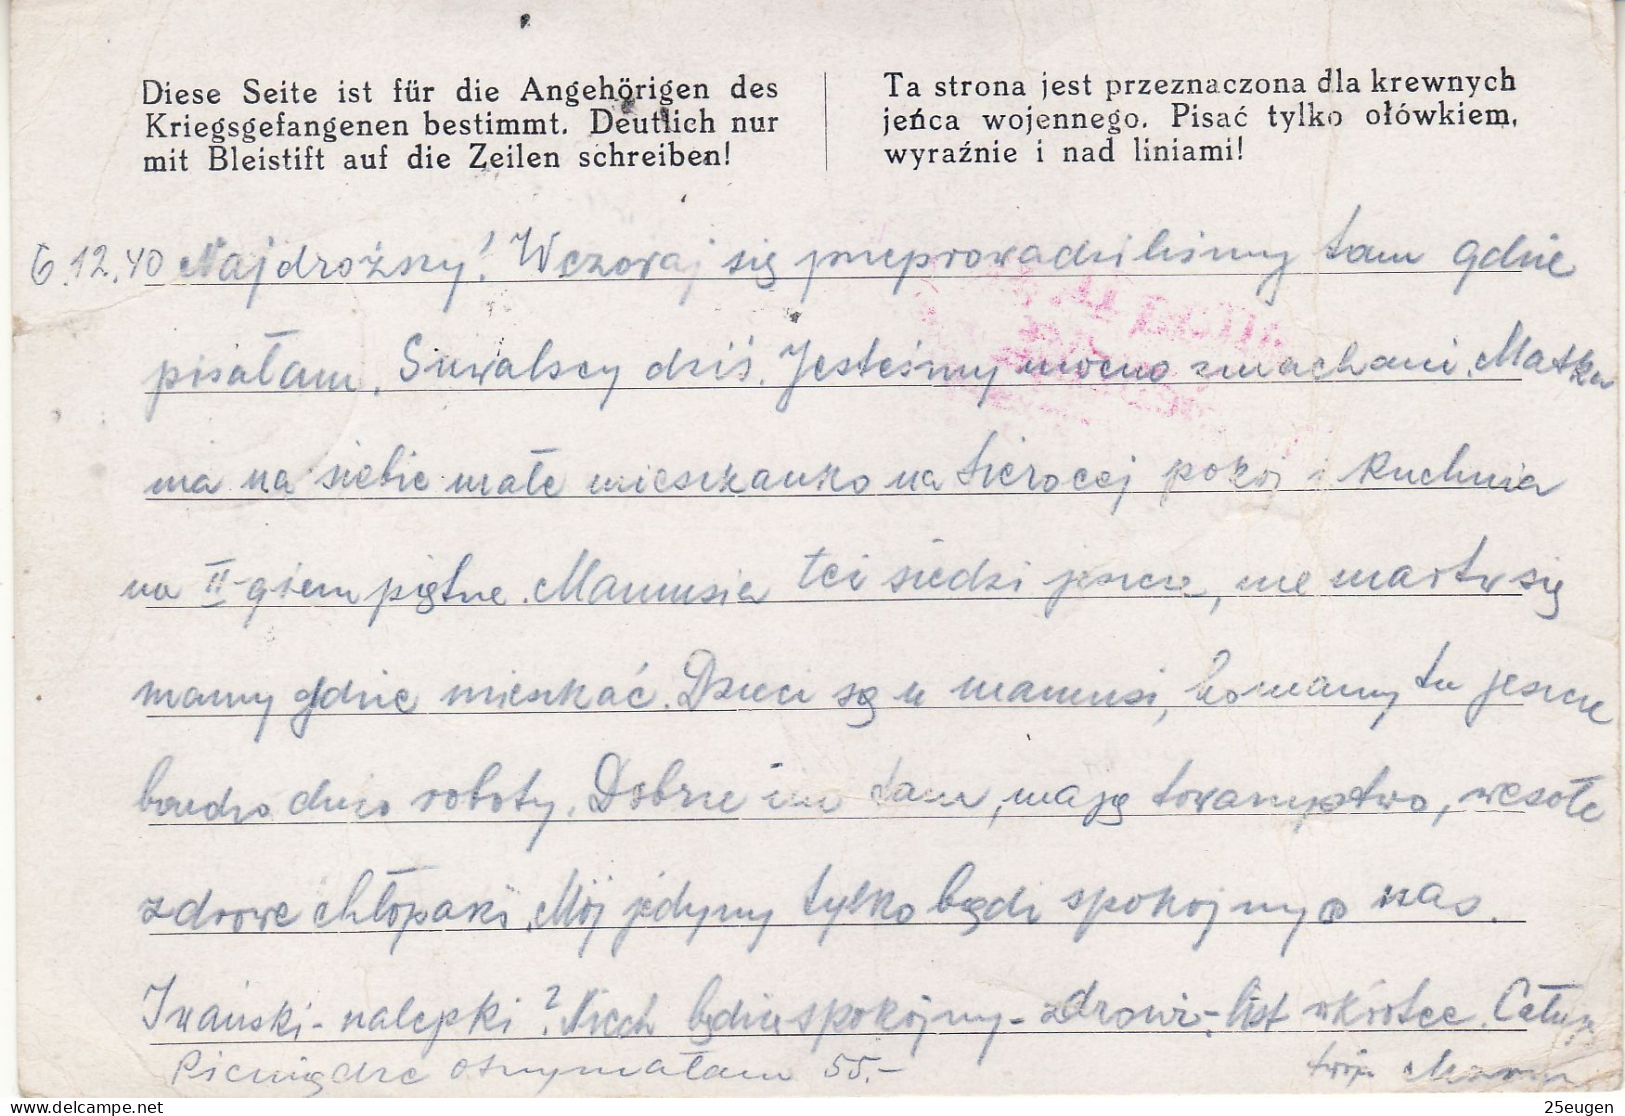 Diese Seite ist für die Angehörigen des
Kriegsgefangenen bestimmt. Deutlich nur
mit Bleistift auf die Zeilen schreiben!
Ta strona jest przeznaczona dla krewnych
jeńca wojennego. Pisać tylko ołówkiem,
wyraźnie i nad liniami!
6.12.40 Najdroższy! Wczoraj się przeprowadziliśmy tam gdzie
pisałam. Suwalscy dziś. Jesteśmy mocno zmachani. Matka
ma na siebie małe mieszkanko na Sierocej pokój i kuchnia
na II-giem piętrze. Mamusia też siedzi jeszcze, nie martw się
mamy gdzie mieszkać. Dzieci są u mamusi, bo mamy tu jeszcze
bardzo dużo roboty. Dobrze im tam, mają towarzystwo, wesołe
zdrowe chłopaki. Mój jedyny tylko bądź spokojny o nas.
Iwański - nalepki? Niech będzie spokojny - zdrowi. list wkrótce. Całuję
Pieniądze otrzymałam 55.-
twoja
25eugen
delcampe.net